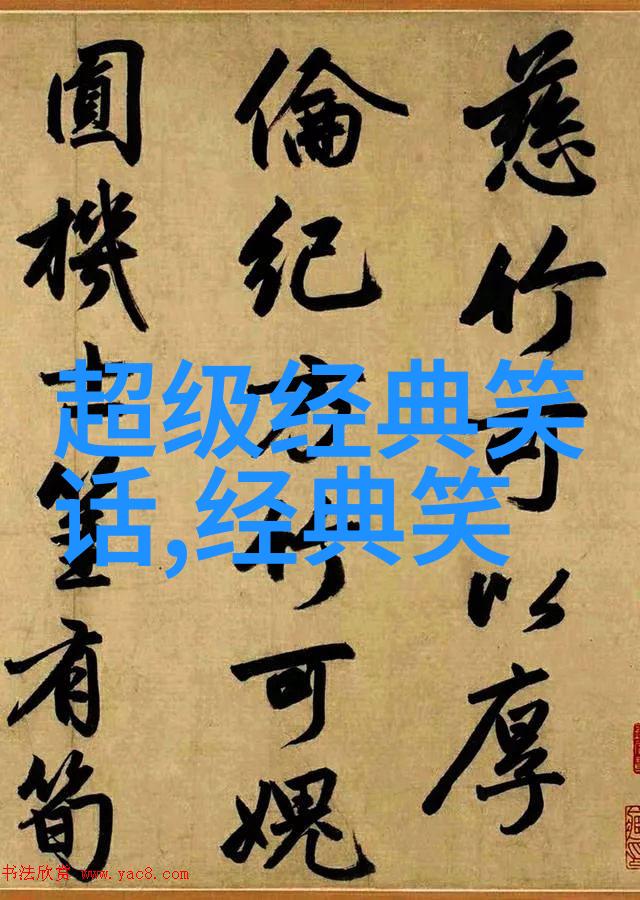 慈竹可以厚
倫紀方竹可愧
圓機士筀有筍
超级经典笑
话,经典笑
书法欣赏 www.yac8.com